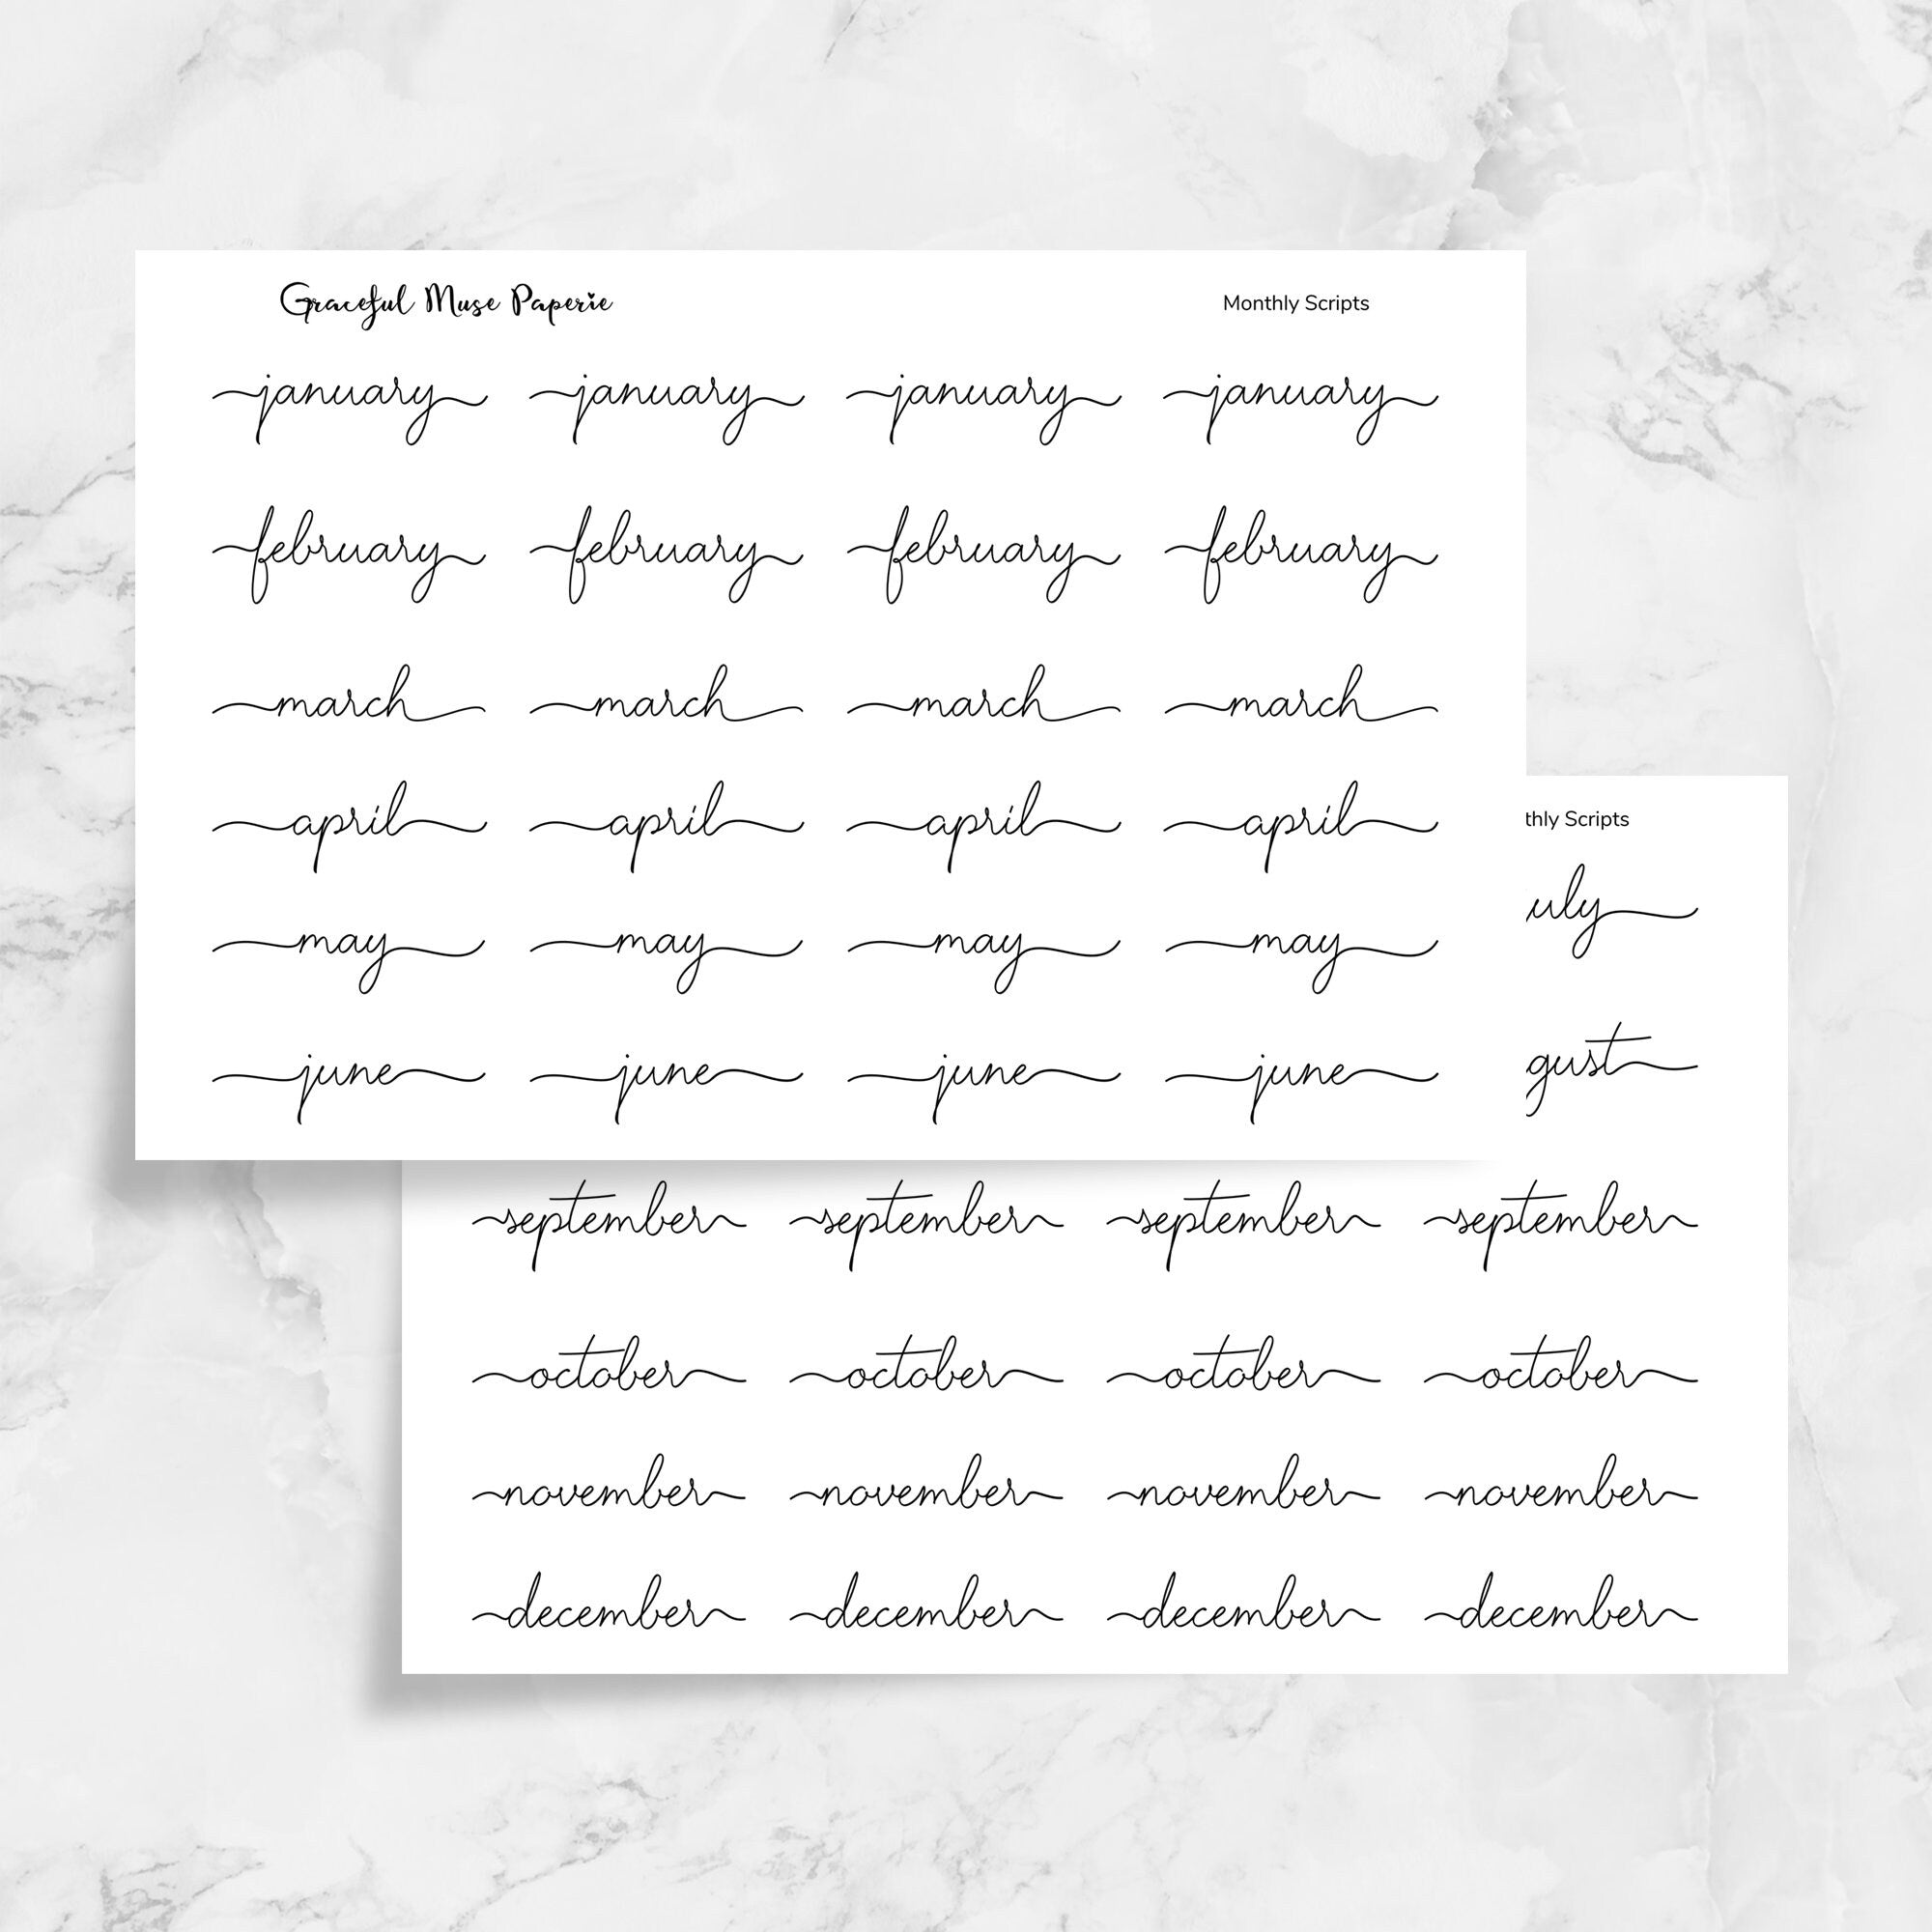 Graceful Muse Paperie Monthly Scripts
january january january january
february february february february
march march march march
april april april april
may may may may
june june june june
thly Scripts
uly
gust
september september september september
october october october october
november november november november
december december december december